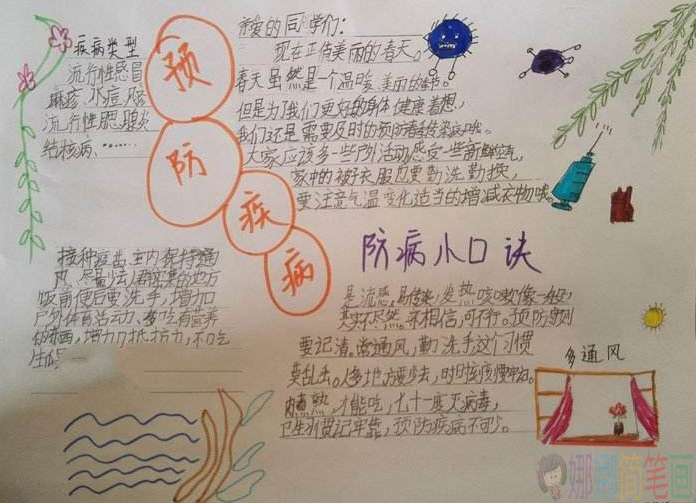 疾病类型
流行性感冒
麻疹、水痘、风疹
流行性腮腺炎
结核病、……
预防疾病
亲爱的同学们：
现在正待美丽的春天。
春天虽然是一个温暖、美丽的季节。
但是为了我们更好的身体健康着想，
我们还是需要及时的预防春季传染病哦。
大家应该多一些户外活动感受一些新鲜空气，
家中的被子衣服也要勤洗勤换，
要注意气温变化适当的增减衣物哦。
接种疫苗，室内保持通
风、尽量少去人群密集的地方
饭前便后要洗手，增加
户外体育活动、多吃有营养
的东西，增加抵抗力，不吃
生
防病小口诀
是流感，易传染，发热咳嗽像一般，
其实不尽然。未相信，可不行。预防守则
要记清。常通风，勤洗手这个习惯
要乱丢。人多地方要少去，时时
肉煮熟，才能吃，七十一度灭病毒，
卫生习惯记牢靠，预防疾病不可少。
多通风
娜娜简笔画